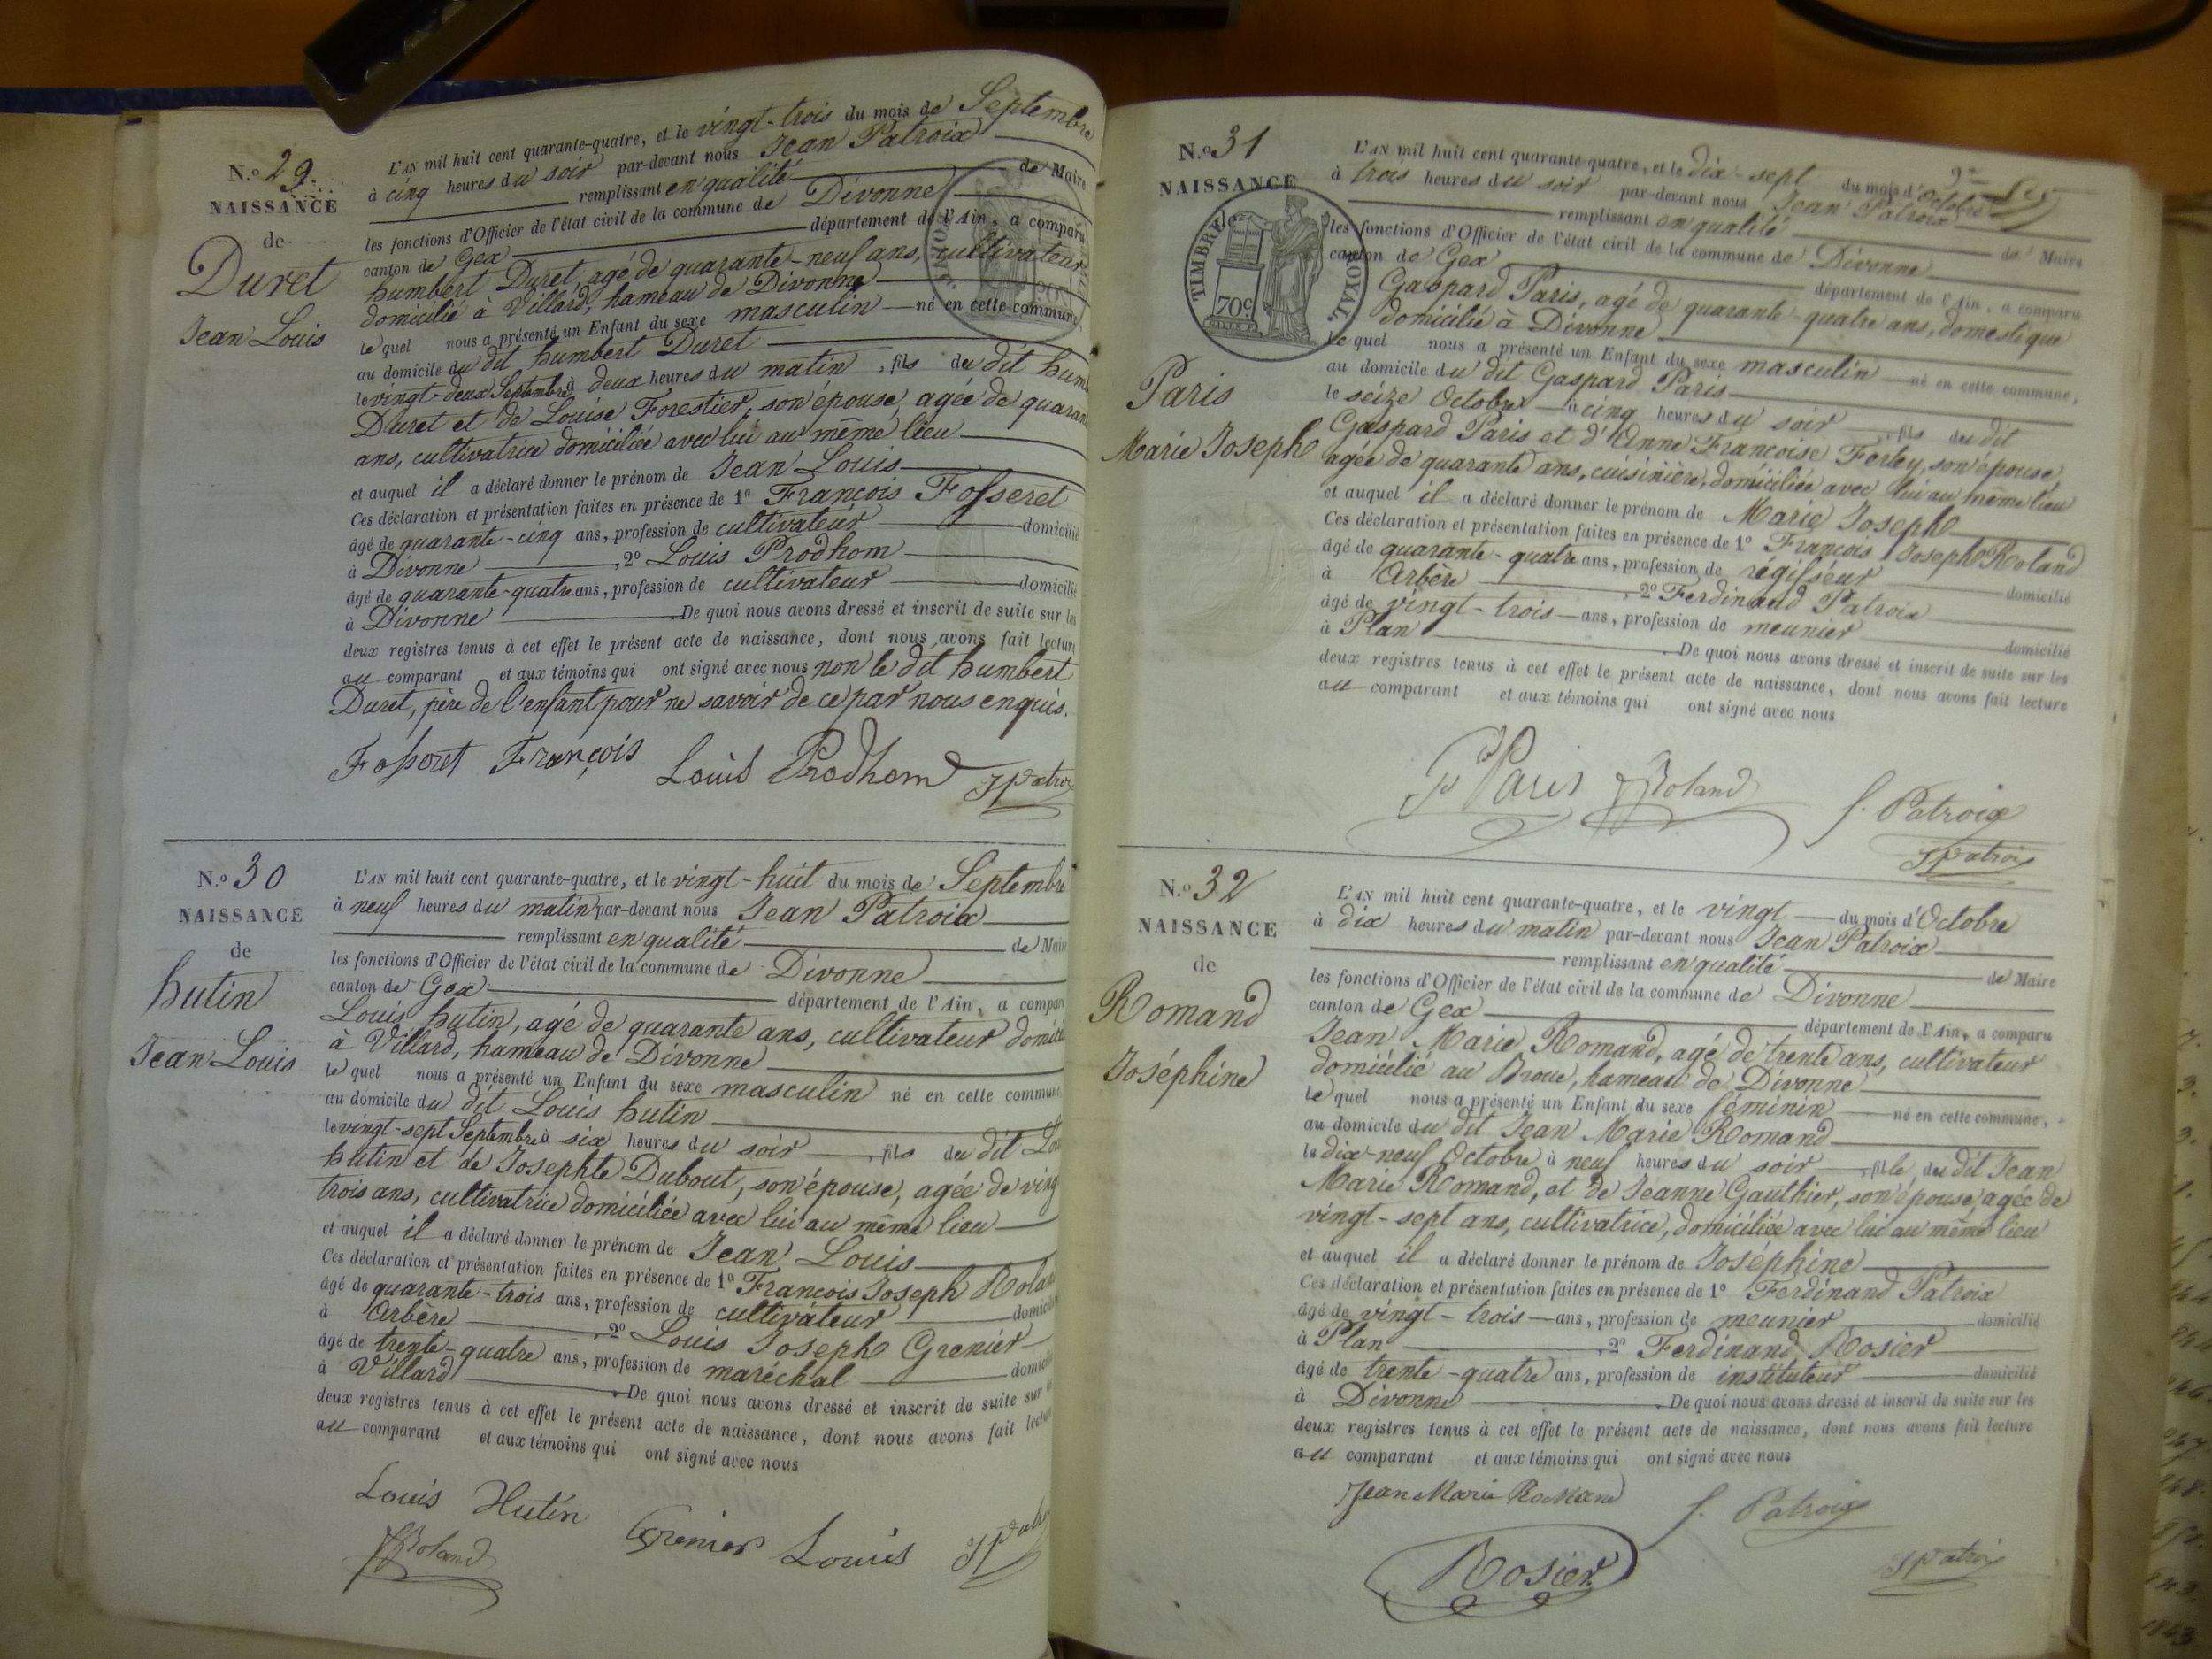 N.º 29.
NAISSANCE
de
Duret
Jean Louis
L'AN mil huit cent quarante-quatre, et le vingt-trois du mois de Septembre
à cinq heures du soir par-devant nous Jean Patroix
remplissant en qualité de Maire
les fonctions d'Officier de l'état civil de la commune de Divonne
canton de Gex département de l'Ain, a comparu
humbert Duret, agé de quarante-neuf ans, cultivateur
domicilié à Villard, hameau de Divonne
le quel nous a présenté un Enfant du sexe masculin né en cette commune
au domicile du dit humbert Duret
le vingt-deux Septembre à deux heures du matin, fils du dit hum
Duret et de Louise Forestier, son épouse, agée de quaran
ans, cultivatrice domiciliée avec lui au même lieu
et auquel il a déclaré donner le prénom de Jean Louis
Ces déclaration et présentation faites en présence de 1º François Fosseret
âgé de quarante-cinq ans, profession de cultivateur domicilié
à Divonne, 2º Louis Prodhom
âgé de quarante-quatre ans, profession de cultivateur domicilié
à Divonne. De quoi nous avons dressé et inscrit de suite sur les
deux registres tenus à cet effet le présent acte de naissance, dont nous avons fait lecture
au comparant et aux témoins qui ont signé avec nous non le dit humbert
Duret, père de l'enfant pour ne savoir de ce par nous enquis.
Fosseret François Louis Prodhom JPatroix
N.º 30
NAISSANCE
de
hutin
Jean Louis
L'AN mil huit cent quarante-quatre, et le vingt-huit du mois de Septembre
à neuf heures du matin par-devant nous Jean Patroix
remplissant en qualité de Maire
les fonctions d'Officier de l'état civil de la commune de Divonne
canton de Gex département de l'Ain, a comparu
Louis hutin, agé de quarante ans, cultivateur domicilié
à Villard, hameau de Divonne
le quel nous a présenté un Enfant du sexe masculin né en cette commune
au domicile du dit Louis hutin
le vingt-sept Septembre à six heures du soir, fils du dit Lou
hutin et de Josephte Dubout, son épouse, agée de ving
trois ans, cultivatrice domiciliée avec lui au même lieu
et auquel il a déclaré donner le prénom de Jean Louis
Ces déclaration et présentation faites en présence de 1º François Joseph Roland
âgé de quarante-trois ans, profession de cultivateur domicilié
à Arbère, 2º Louis Joseph Grenier
âgé de trente-quatre ans, profession de maréchal domicilié
à Villard. De quoi nous avons dressé et inscrit de suite sur
deux registres tenus à cet effet le présent acte de naissance, dont nous avons fait lecture
au comparant et aux témoins qui ont signé avec nous
Louis Hutin
Grenier Louis JPatroix
JRoland
N.º 31
NAISSANCE
de
TIMBRE ROYAL.
70c
Paris
Marie Joseph
L'AN mil huit cent quarante-quatre, et le dix-sept du mois d'Octobre
à trois heures du soir par-devant nous Jean Patroix
remplissant en qualité de Maire
les fonctions d'Officier de l'état civil de la commune de Divonne
canton de Gex département de l'Ain, a comparu
Gaspard Paris, agé de quarante-quatre ans, domestique
domicilié à Divonne
le quel nous a présenté un Enfant du sexe masculin né en cette commune,
au domicile du dit Gaspard Paris
le seize Octobre à cinq heures du soir fils du dit
Gaspard Paris et d'Anne Françoise Ferley, son épouse,
agée de quarante ans, cuisinière, domiciliée avec lui au même lieu
et auquel il a déclaré donner le prénom de Marie Joseph
Ces déclaration et présentation faites en présence de 1º François Joseph Roland
âgé de quarante-quatre ans, profession de régisseur domicilié
à Arbère, 2º Ferdinand Patroix
âgé de vingt-trois ans, profession de meunier domicilié
à Plan. De quoi nous avons dressé et inscrit de suite sur les
deux registres tenus à cet effet le présent acte de naissance, dont nous avons fait lecture
au comparant et aux témoins qui ont signé avec nous
Paris JRoland
f. Patroix
JPatroix
N.º 32
NAISSANCE
de
Romand
Joséphine
L'AN mil huit cent quarante-quatre, et le vingt du mois d'Octobre
à dix heures du matin par-devant nous Jean Patroix
remplissant en qualité de Maire
les fonctions d'Officier de l'état civil de la commune de Divonne
canton de Gex département de l'Ain, a comparu
Jean Marie Romand, agé de trente ans, cultivateur
domicilié au Broue, hameau de Divonne
le quel nous a présenté un Enfant du sexe féminin né en cette commune,
au domicile du dit Jean Marie Romand
le dix-neuf Octobre à neuf heures du soir, fille du dit Jean
Marie Romand, et de Jeanne Gauthier, son épouse, agée de
vingt-sept ans, cultivatrice, domiciliée avec lui au même lieu
et auquel il a déclaré donner le prénom de Joséphine
Ces déclaration et présentation faites en présence de 1º Ferdinand Patroix
âgé de vingt-trois ans, profession de meunier domicilié
à Plan, 2º Ferdinand Rosier
âgé de trente-quatre ans, profession de instituteur domicilié
à Divonne. De quoi nous avons dressé et inscrit de suite sur les
deux registres tenus à cet effet le présent acte de naissance, dont nous avons fait lecture
au comparant et aux témoins qui ont signé avec nous
Jean Marie Romand f. Patroix
Rosier JPatroix